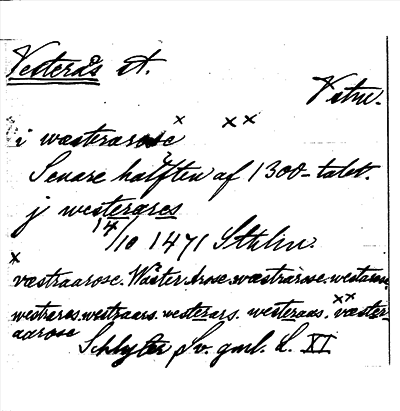 Vesterås st.
Vstm.
x x x
i wæsterarose
Senare hälften af 1300-talet.
j westerares
14/10 1471 Sthlm.
x
væstraarose. Wäster Arose. wæstrárose. westaros.
x x
westrares. westraars. westerars. westeraas. væster-
aarose
Schlyter Sv. gml. L. XI